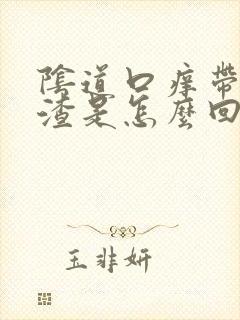 陰道口痒帶
渣是怎麼回
玉非妍